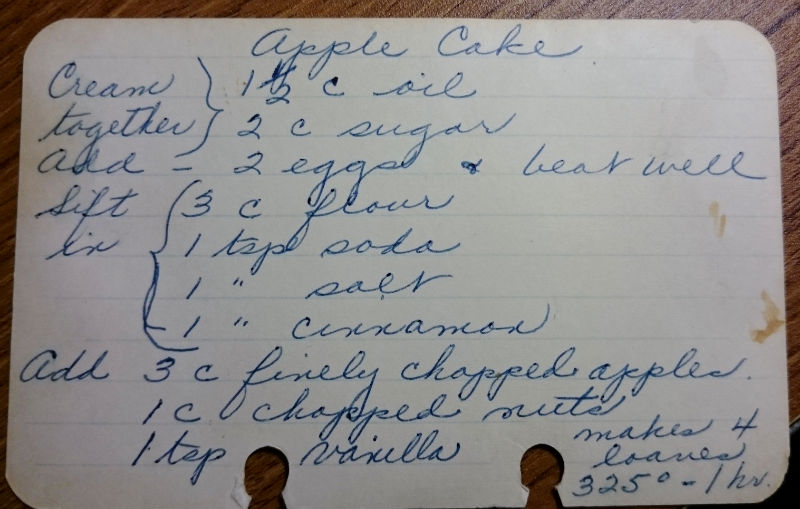 Apple Cake
Cream together } 1 1/2 c oil
2 c sugar
Add - 2 eggs & beat well
Sift in { 3 c flour
1 tsp soda
1 " salt
1 " cinnamon
Add 3 c finely chopped apples.
1 c chopped nuts
1 tsp vanilla
makes 4
loaves
325° - 1 hr.